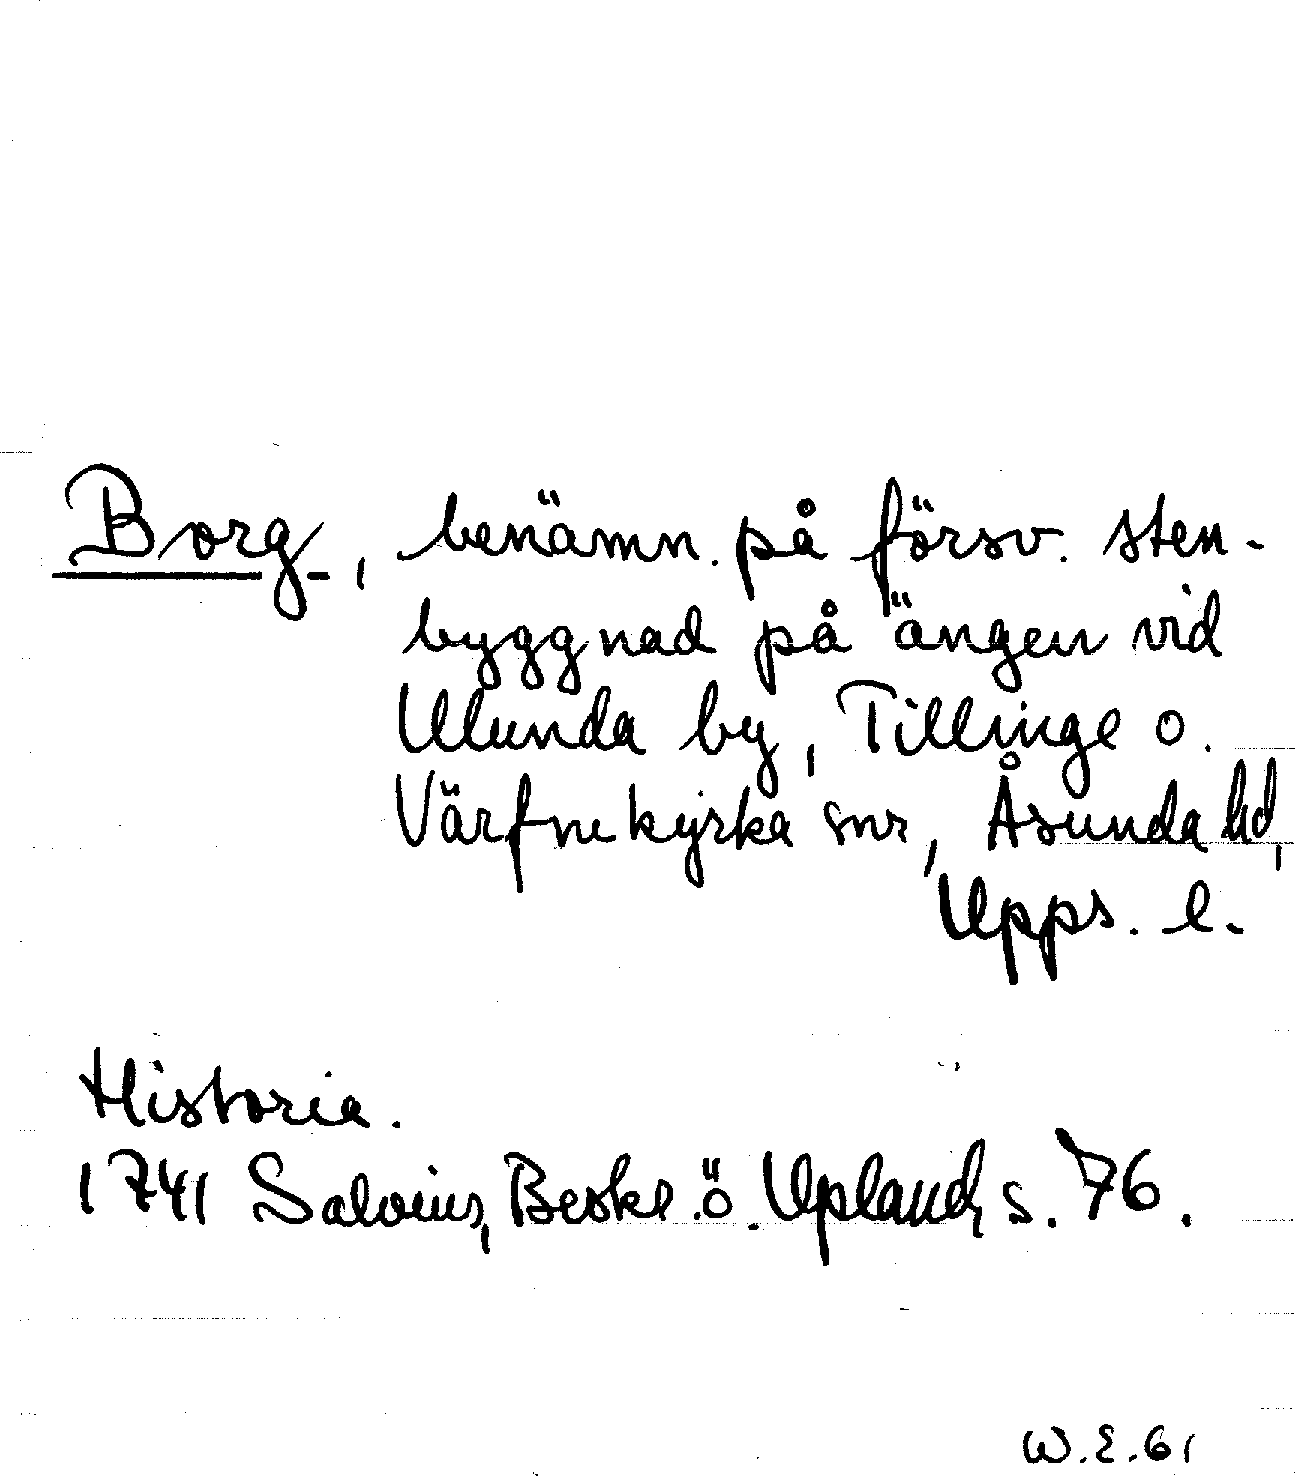 Borg, benämn. på försv. sten-
byggnad på ängen vid
Ulunda by, Tillinge o.
Värfnekyrka snr, Åsunda hd,
Upps. l.
Historia.
1741 Salvius, Beskr. ö. Upland, s. 76.
W.E. 61